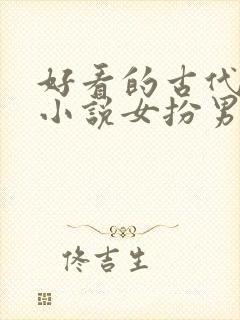 好看的古代
小说女扮男
佟吉生